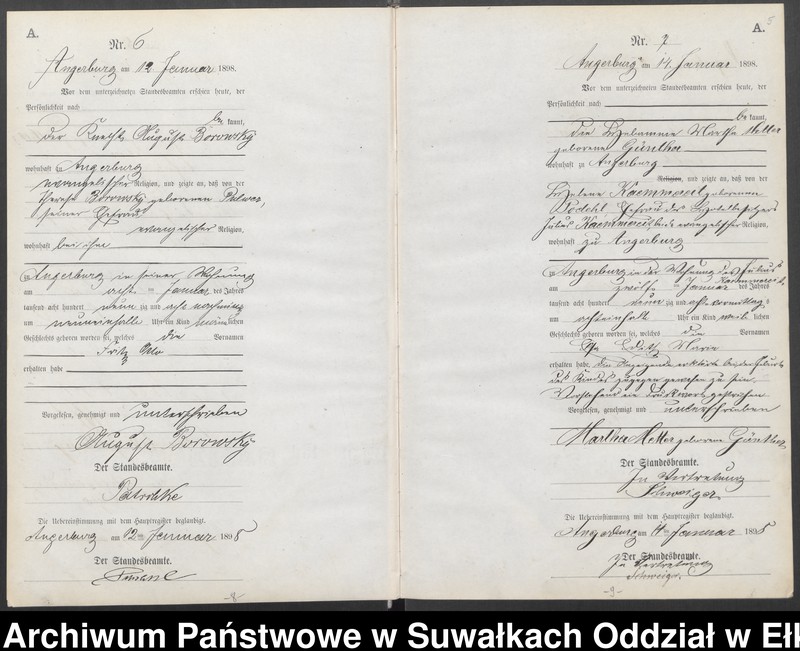 A.
Nr. 6
Angerburg am 12. Januar 1898.
Vor dem unterzeichneten Standesbeamten erschien heute, der
Persönlichkeit nach
be kannt,
der Knecht August Borowsky
wohnhaft zu Angerburg
evangelischer Religion, und zeigte an, daß von der
Therese Borowsky geborenen
seiner Ehefrau
evangelischer Religion,
wohnhaft bei ihm
zu Angerburg in seiner Wohnung
am acht ten Januar des Jahres
tausend acht hundert neun zig und acht nachmittags
um neuneinhalb Uhr ein Kind männlichen
Geschlechts geboren worden sei, welches die Vornamen
Fritz Otto
erhalten habe
Vorgelesen, genehmigt und unterschrieben
August Borowsky
Der Standesbeamte.
Die Uebereinstimmung mit dem Hauptregister beglaubigt.
Angerburg am 12ten Januar 1898
Der Standesbeamte.
-8-
A.
5
Nr. 7
Angerburg am 14. Januar 1898.
Vor dem unterzeichneten Standesbeamten erschien heute, der
Persönlichkeit nach
be kannt,
die Hebamme Martha Metter
geborene Günther
wohnhaft zu Angerburg
Religion, und zeigte an, daß von der
Helene Kaemmereit geborenen
Ehefrau des
Julius Kaemmereit beide evangelischer Religion,
wohnhaft zu Angerburg
zu Angerburg in der Wohnung des Julius
Kaemmereit
am zwölf ten Januar des Jahres
tausend acht hundert neun zig und acht vormittags
um achteinhalb Uhr ein Kind weiblichen
Geschlechts geboren worden sei, welches die Vornamen
Edith Marie
erhalten habe. Die Anzeigende erklärte bei der Geburt
des Kindes zugegen gewesen zu sein.
Vorstehend ein Druckwort gestrichen.
Vorgelesen, genehmigt und unterschrieben
Martha Metter geborene Günther
Der Standesbeamte.
In Vertretung
Schweiger
Die Uebereinstimmung mit dem Hauptregister beglaubigt.
Angerburg am 14ten Januar 1898
Der Standesbeamte.
In Vertretung
Schweiger.
-9-
Archiwum Państwowe w Suwałkach Oddział w Ełk